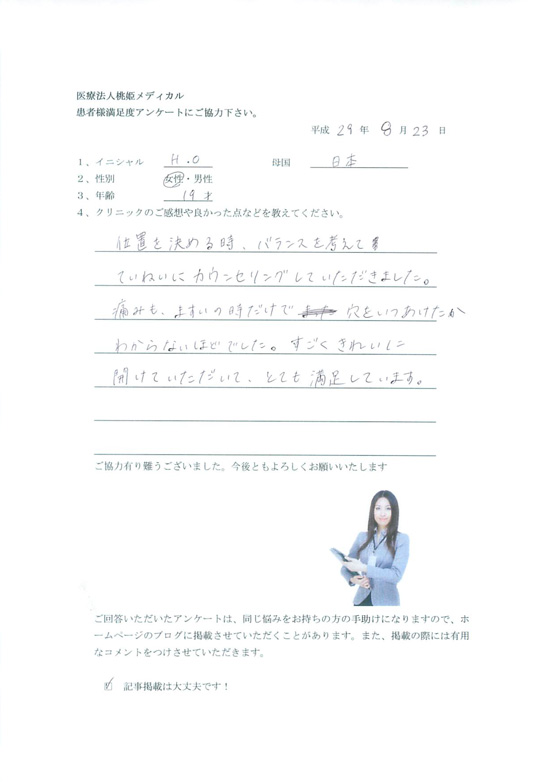 医療法人桃姫メディカル
患者様満足度アンケートにご協力下さい。
平成 29 年 8 月 23 日
1、イニシャル H.O 母国 日本
2、性別 女性・男性
3、年齢 19才
4、クリニックのご感想や良かった点などを教えてください。
位置を決める時、バランスを考えて
ていねいにカウンセリングしていただきました。
痛みも、ますいの時だけで 穴をいつあけたか
わからないほどでした。すごくきれいに
開けていただいて、とても満足しています。
ご協力有り難うございました。今後ともよろしくお願いいたします
ご回答いただいたアンケートは、同じ悩みをお持ちの方の手助けになりますので、ホ
ームページのブログに掲載させていただくことがあります。また、掲載の際には有用
なコメントをつけさせていただきます。
☑ 記事掲載は大丈夫です！